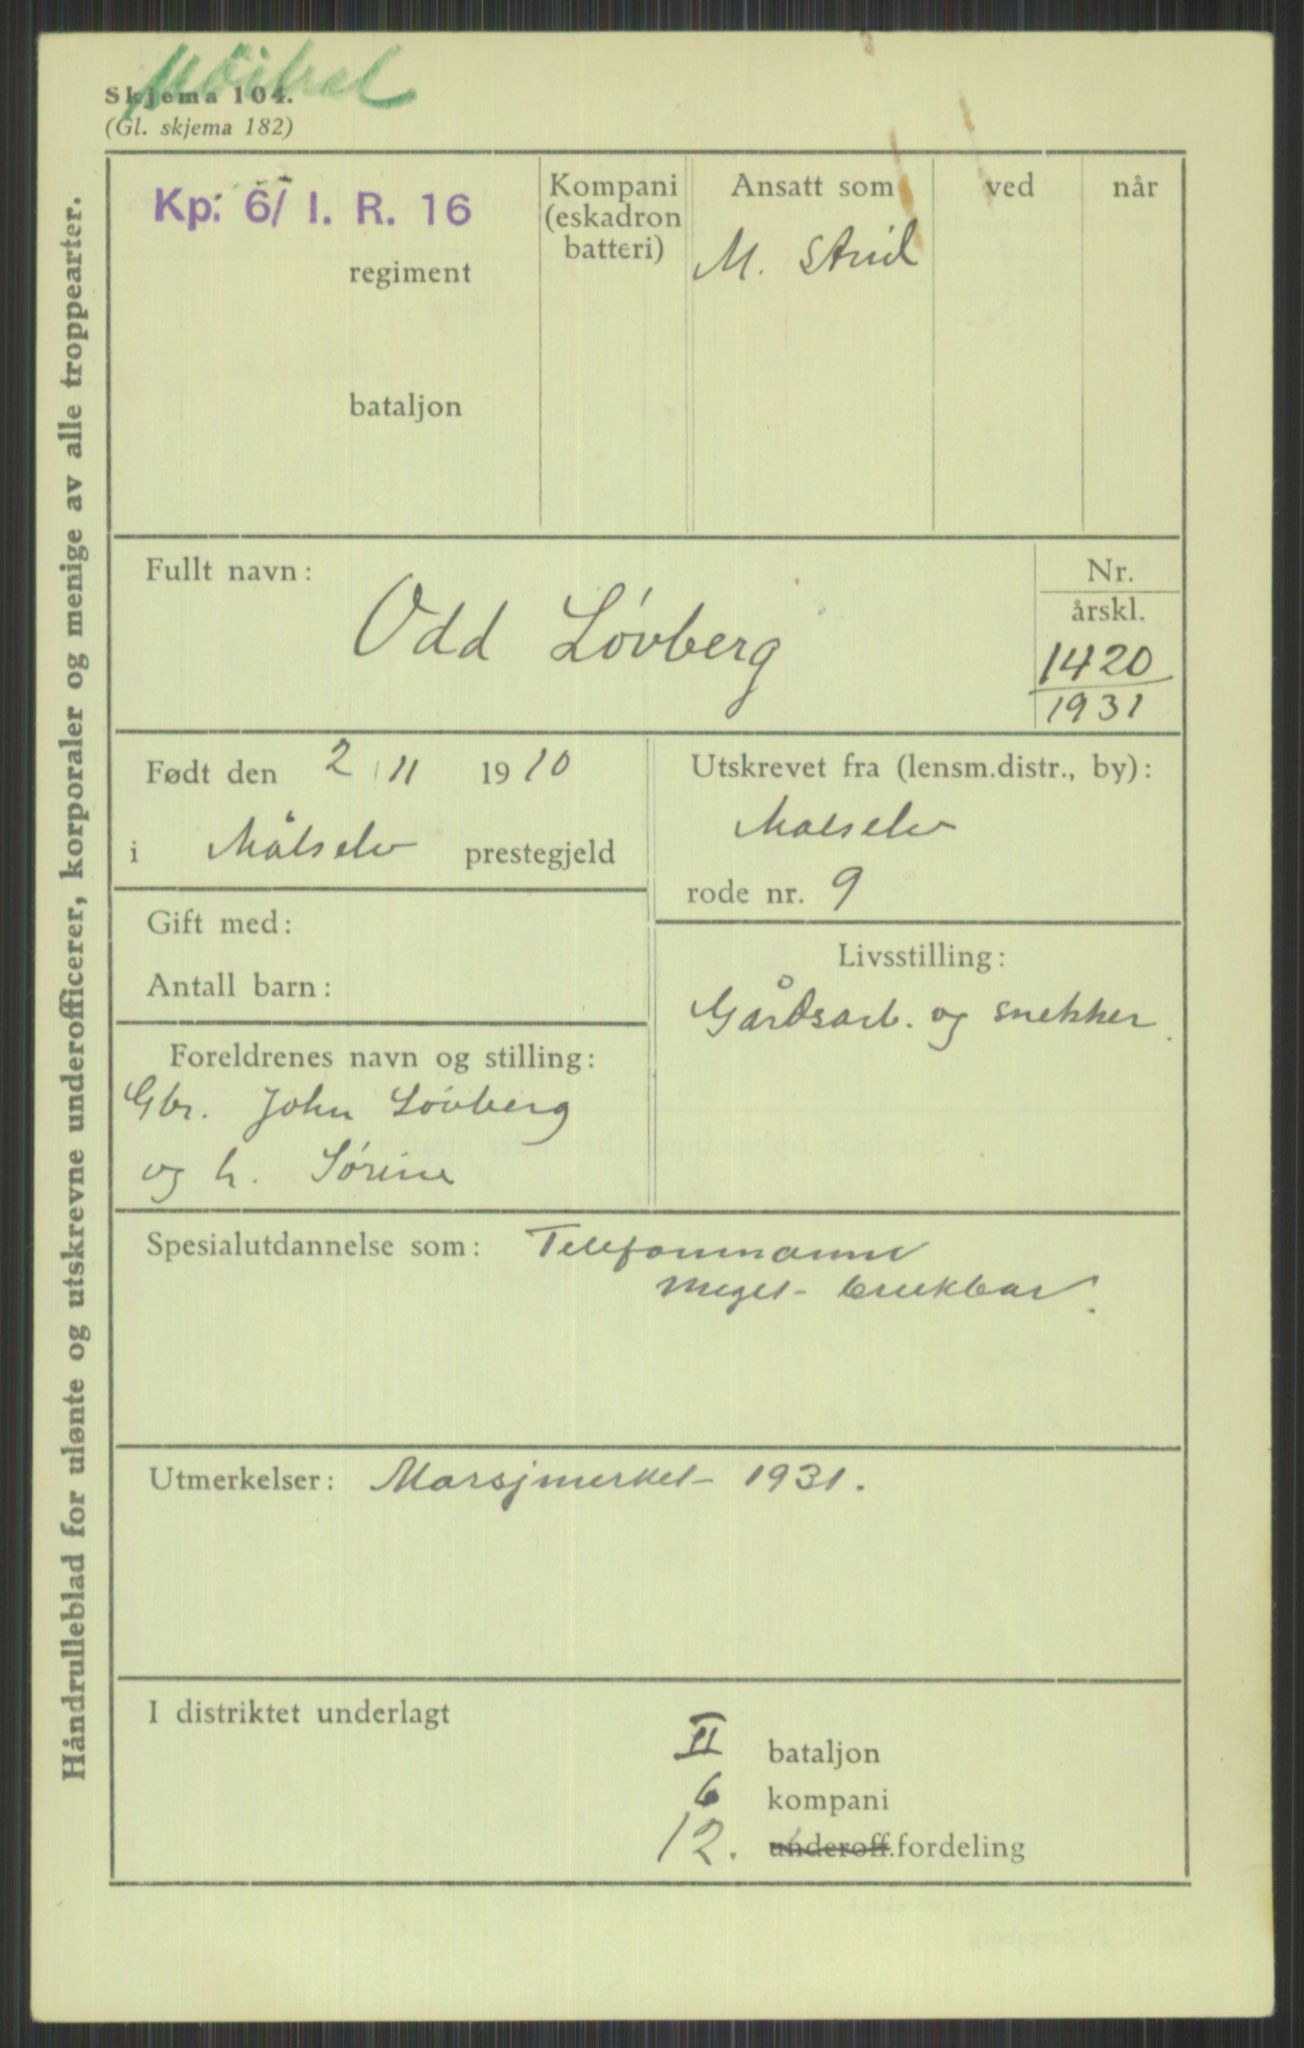 Skjema 104.
(Gl. skjema 182)
Håndrulleblad for ulønte og utskrevne underofficerer, korporaler og menige av alle troppearter.
Kp. 6/ I. R. 16
regiment
bataljon
Kompani
(eskadron
batteri)
Ansatt som
M. Strid
ved
når
Fullt navn:
Odd Løvberg
Nr.
årskl.
1420
1931
Født den 2 11 1910
i Målselv prestegjeld
Utskrevet fra (lensm.distr., by):
Målselv
rode nr. 9
Gift med:
Antall barn:
Livsstilling:
Gårdsarb. og snekker.
Foreldrenes navn og stilling:
Gbr. John Løvberg
og h. Sørine
Spesialutdannelse som: Telefonmann
Meget brukbar.
Utmerkelser: Marsjmerket 1931.
I distriktet underlagt
II bataljon
6 kompani
12. underoff.fordeling